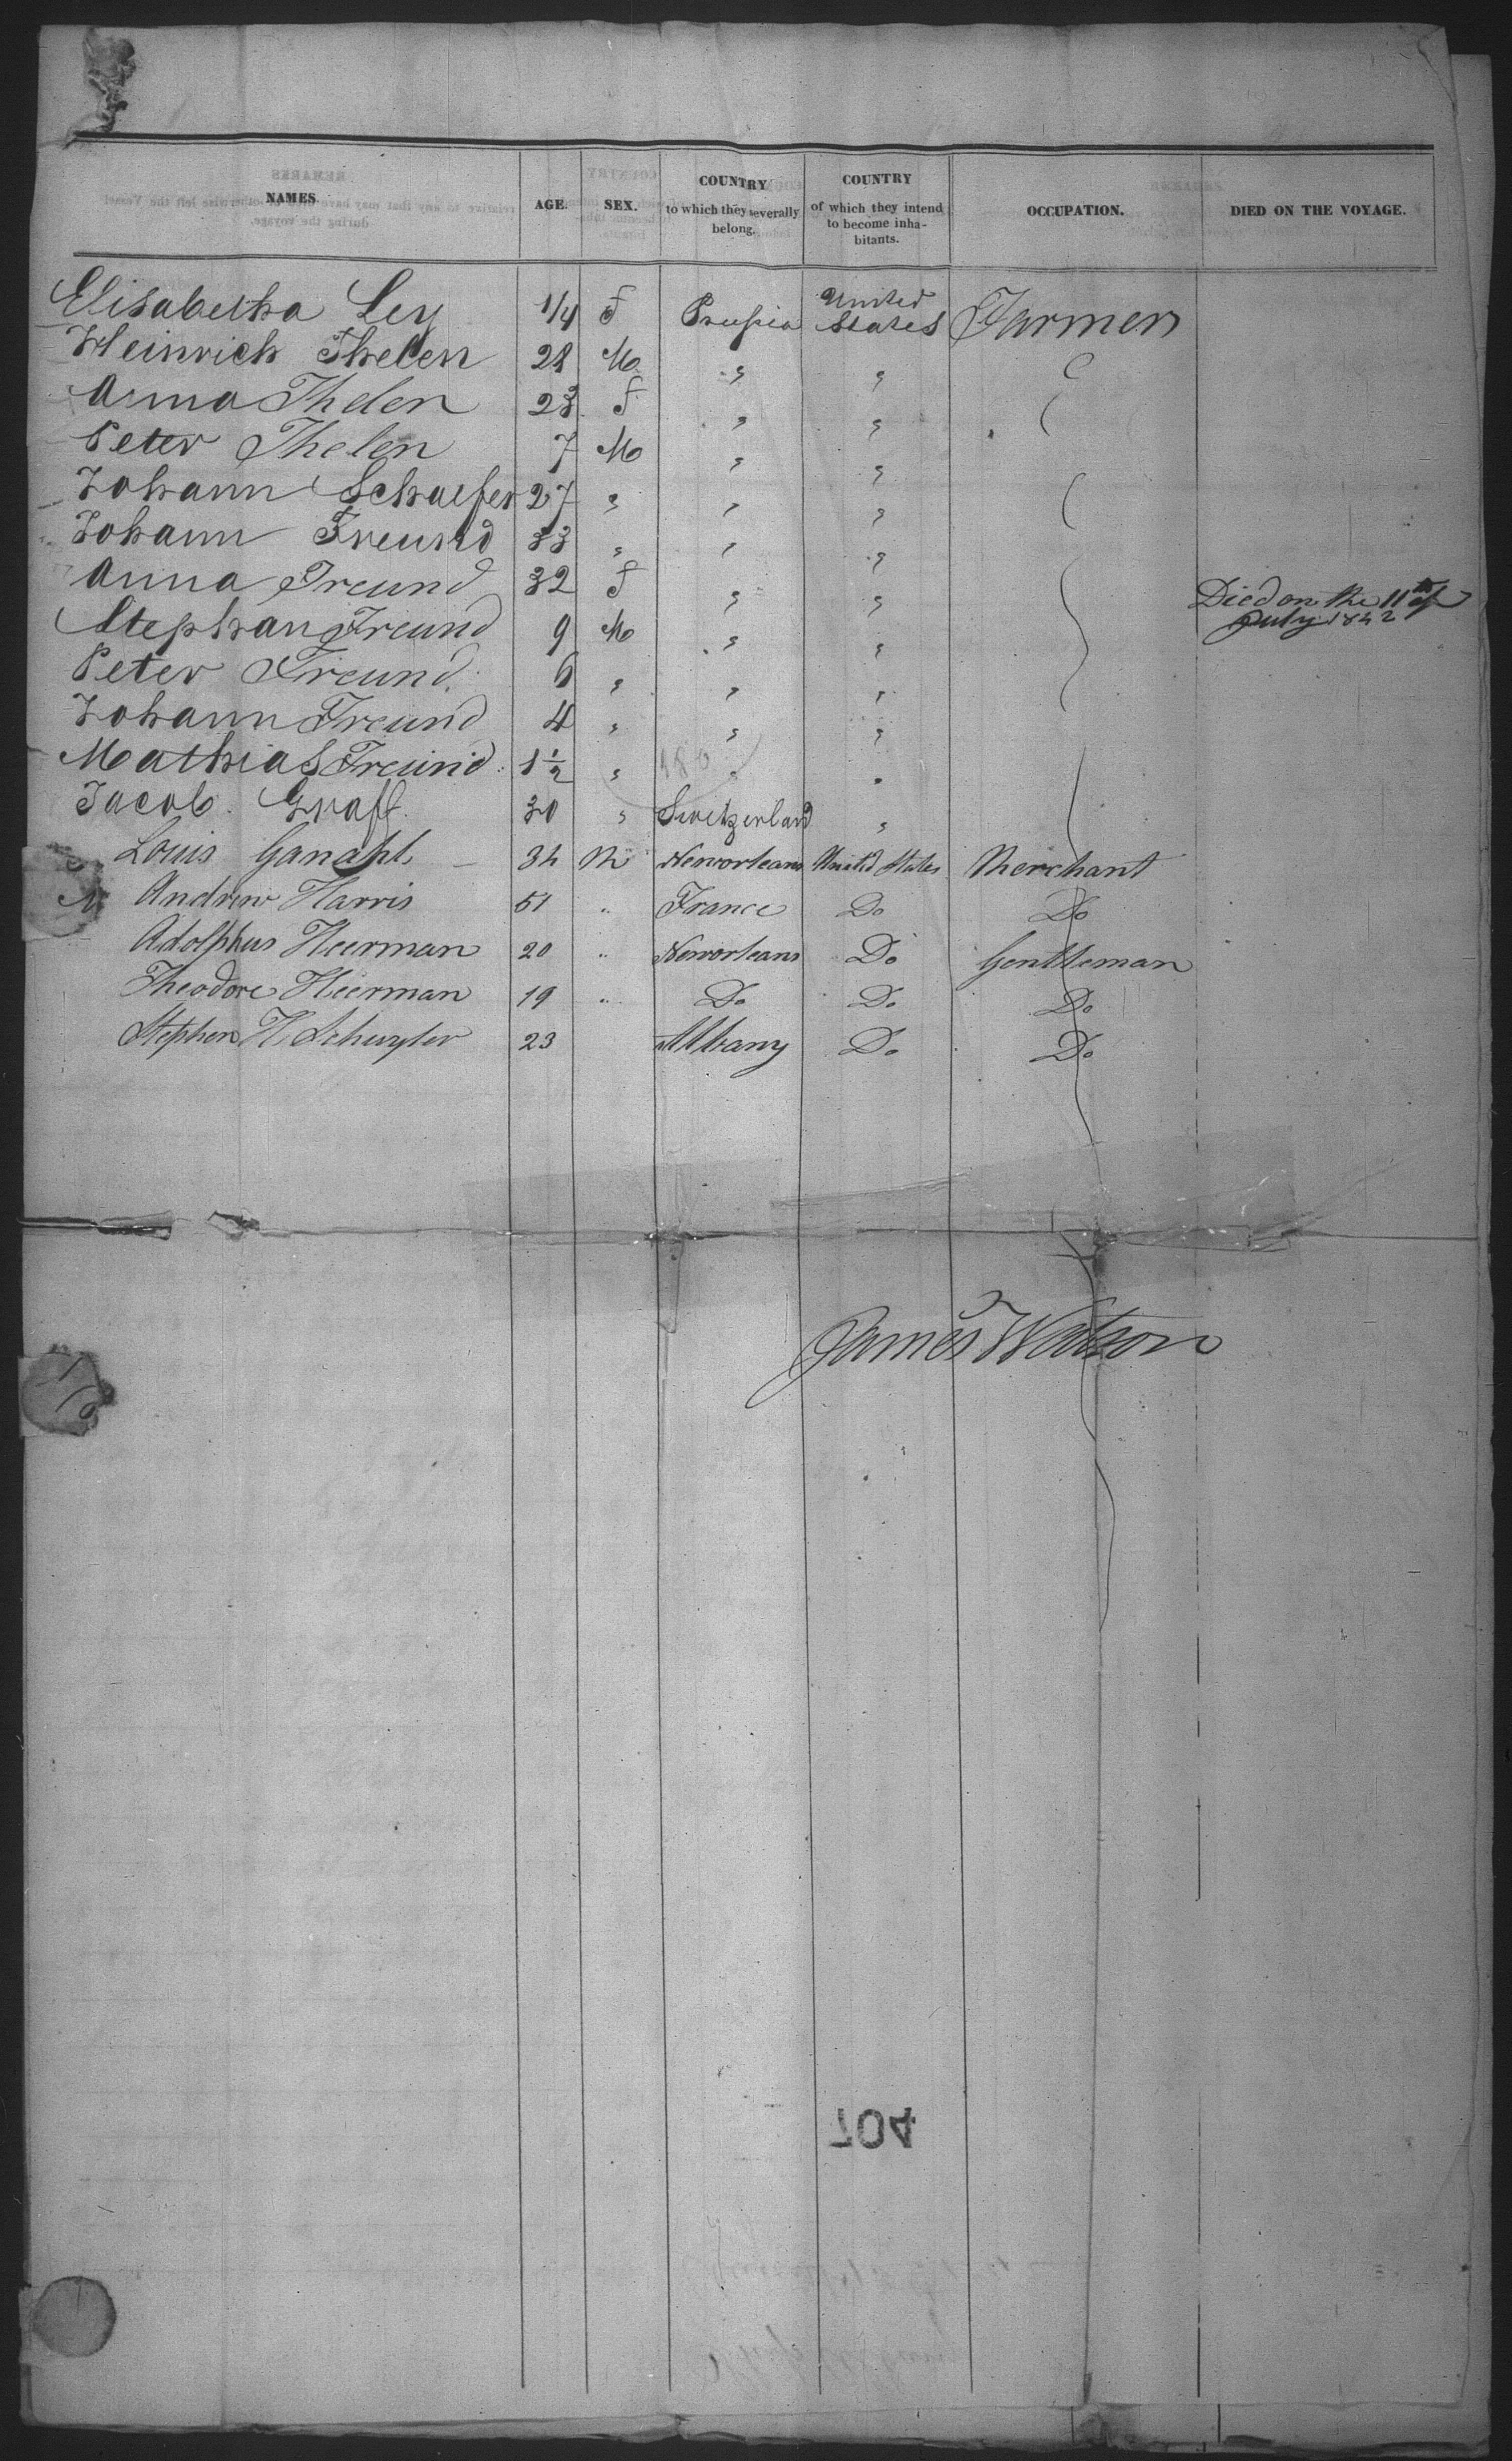 NAMES. AGE. SEX. COUNTRY to which they severally belong. COUNTRY of which they intend to become inhabitants. OCCUPATION. DIED ON THE VOYAGE.
Elisabetha Ley 1/4 F Prussia United States Farmer
Heinrich Thelen 28 M " "
Anna Thelen 23 F " "
Peter Thelen 7 M " "
Johann Schaefer 27 " " "
Johann Freund 33 " " "
Anna Freund 32 F " "
Stephan Freund 9 M " " Died on the 11th of July 1842
Peter Freund 6 " " "
Johann Freund 4 " " "
Mathias Freund 1 1/2 " " "
Jacob Graff 30 " Switzerland "
Louis Ganahl 34 M Neworleans United States Merchant
Andrew Harris 51 " France Do Do
Adolphus Heerman 20 " Neworleans Do Gentleman
Theodore Heerman 19 " Do Do Do
Stephen H. Schuyler 23 Albany Do Do
James Watson
704